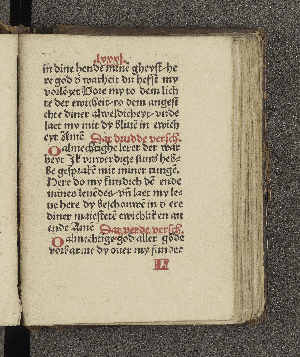 lxxxi.
in dine hende mine gheyst·he
re god d warheit du heſſt my
vorlözet Vore my to dem lich
te der ewicheit·to dem angeſt
chte diner alweldicheyt·vnde
laet my mit dy bliuē in ewich
eyt Amē Dat drudde verſch.
O almechtighe lerer der war
heyt Ik vnwerdige ſund heb=
be geſprakē mit miner tungē.
Here do my kundich dē ende
mines leuēdes·vn̄ laet my le=
ue here dy beſchouwen in d ere
diner maieſtetē ewichlikē an
ende Amē Dat verde verſch.
O almechtige·god·aller gode
vorbarme dy ouer my ſunder